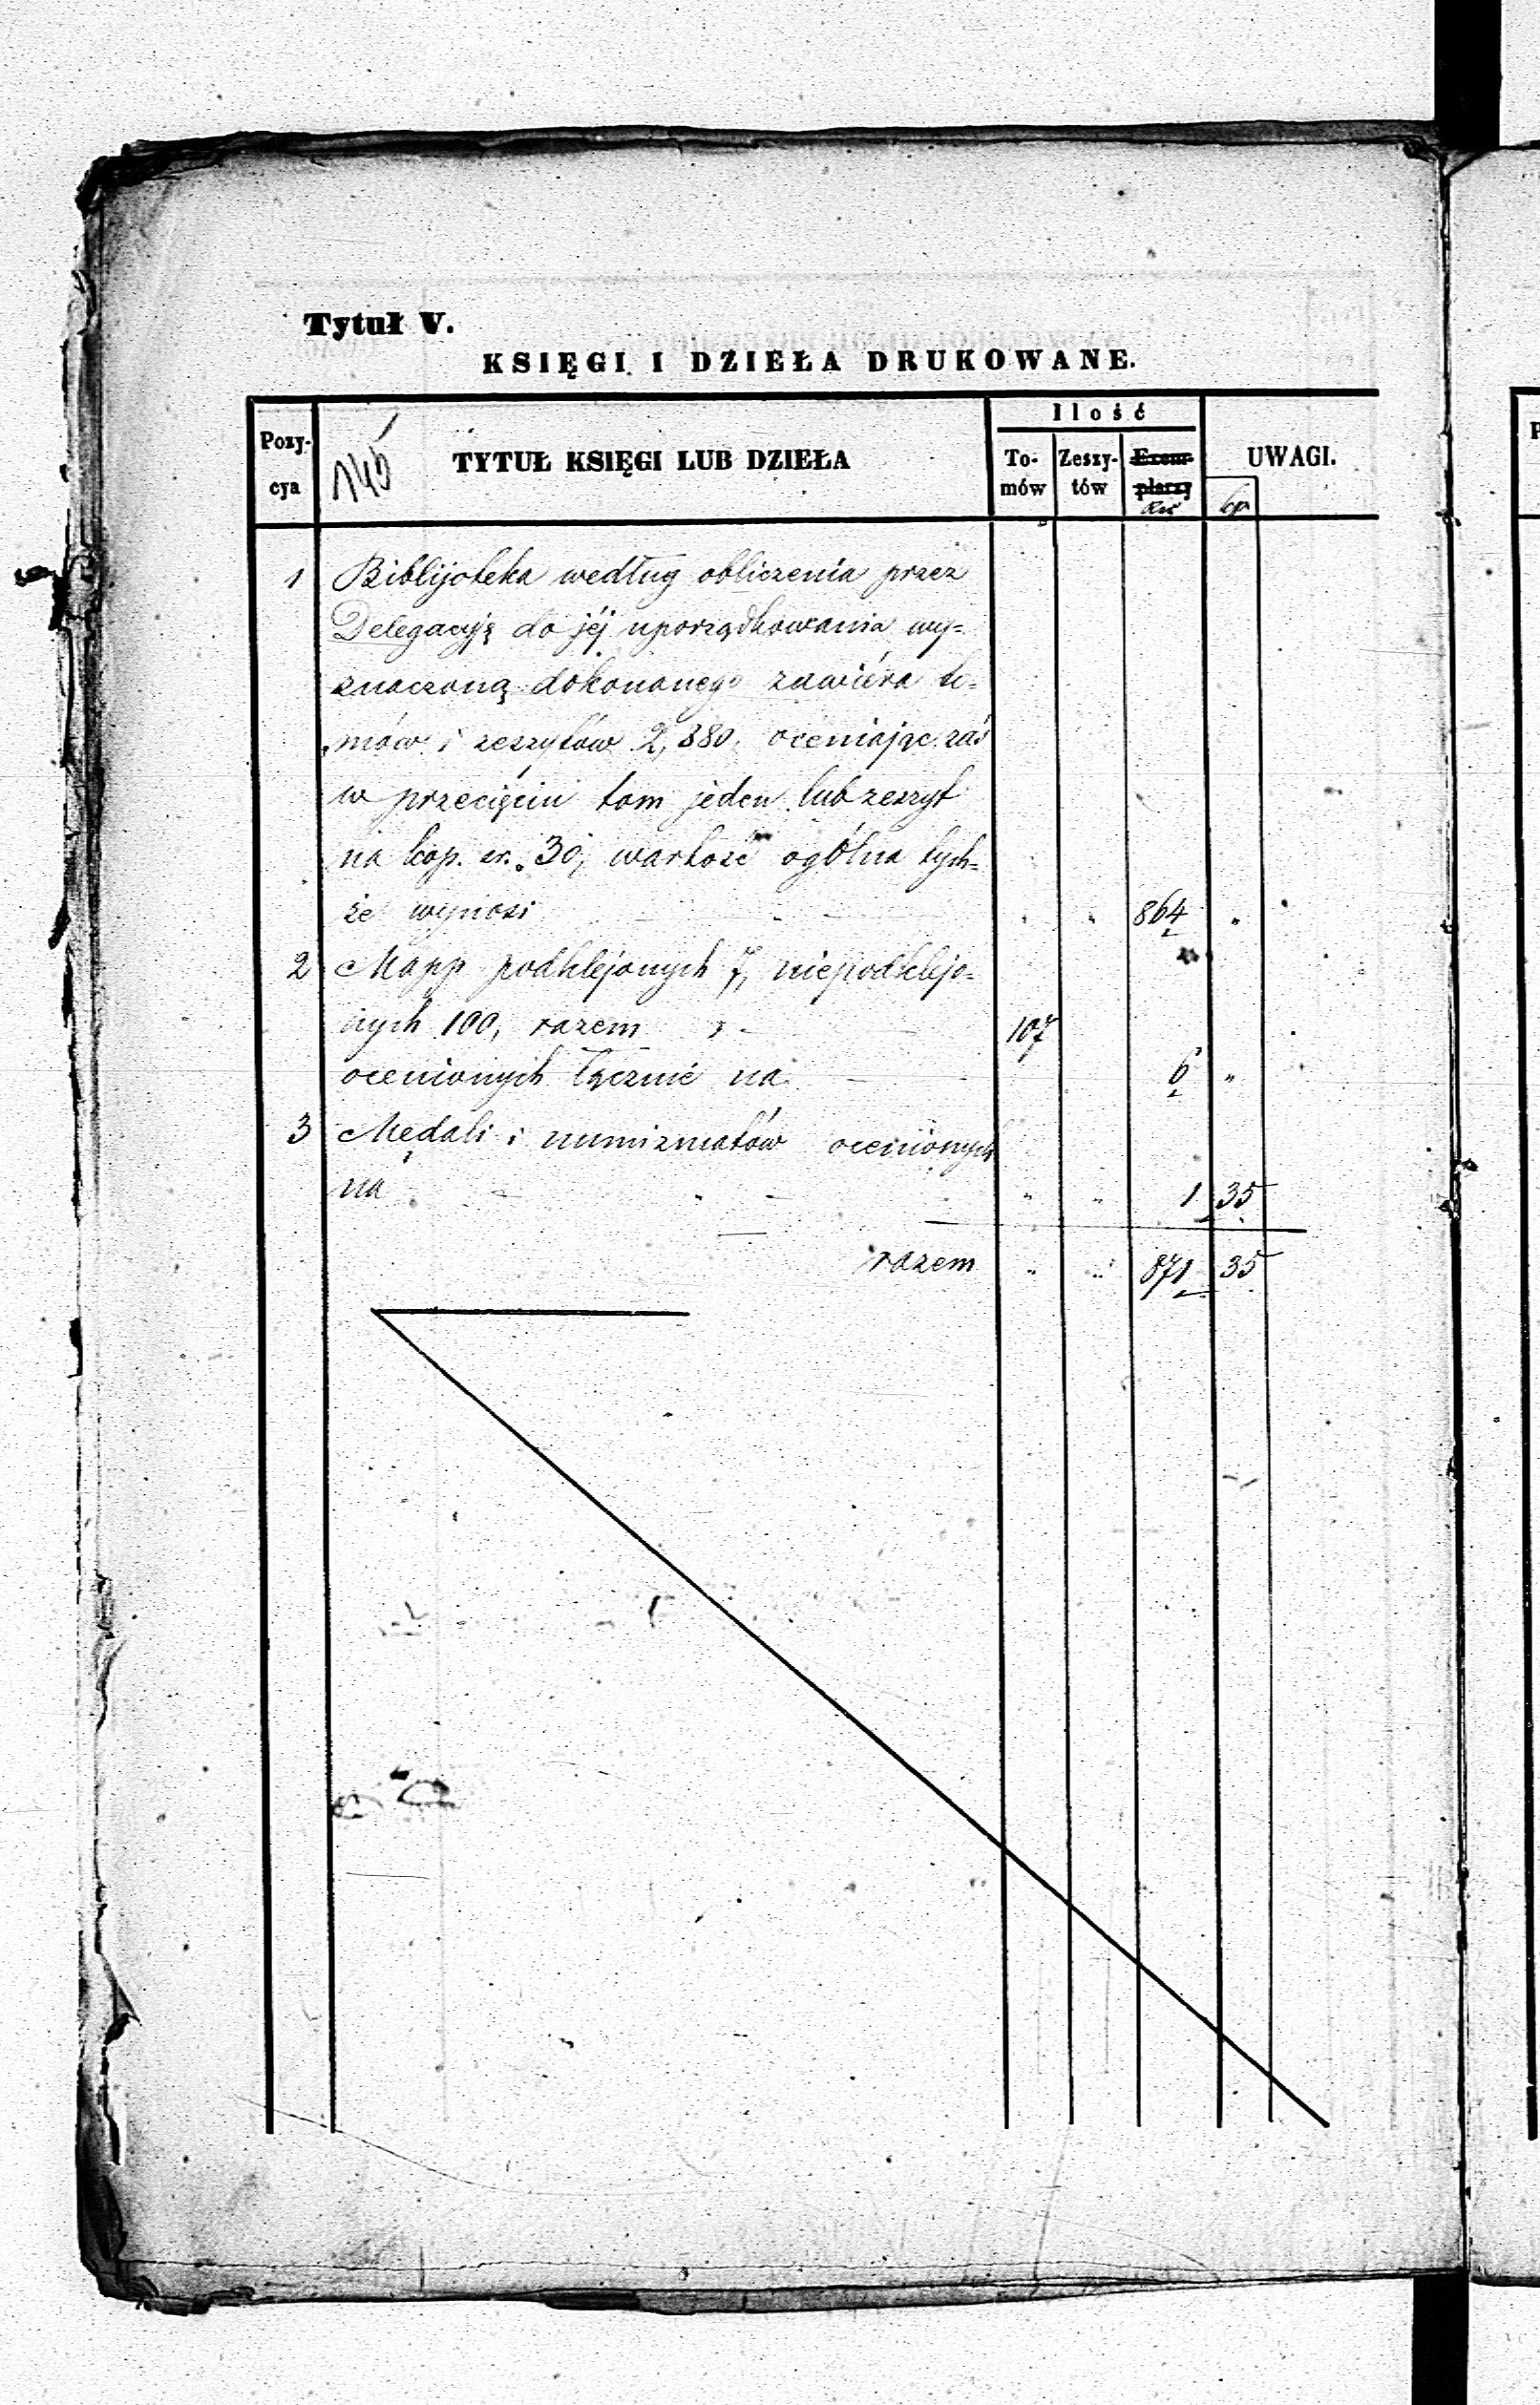 Tytuł V.
KSIĘGI I DZIEŁA DRUKOWANE.
Pozy-
cya
TYTUŁ KSIĘGI LUB DZIEŁA
Ilość
To-
mów
Zeszy-
tów
Exem-
plarzy
Rs
kop
UWAGI.
1 Biblijoteka według obliczenia przez
Delegacyją do jéj uporządkowania wy-
znaczoną dokonanego zawiéra to-
mów i zeszytów 2,880, oceniając zaś
w przecięciu tom jeden lub zeszyt
na kop. sr. 30, wartość ogólna tych-
że wynosi - „ - „ „ 864 „
2 Mapp podklejonych 7, niepodklejo-
nych 100, razem „ - 107
ocenionych łącznie na - 6 „
3 Medali i numizmatów ocenionych
na - „ - „ „ 1 35
razem „ „ 871 35